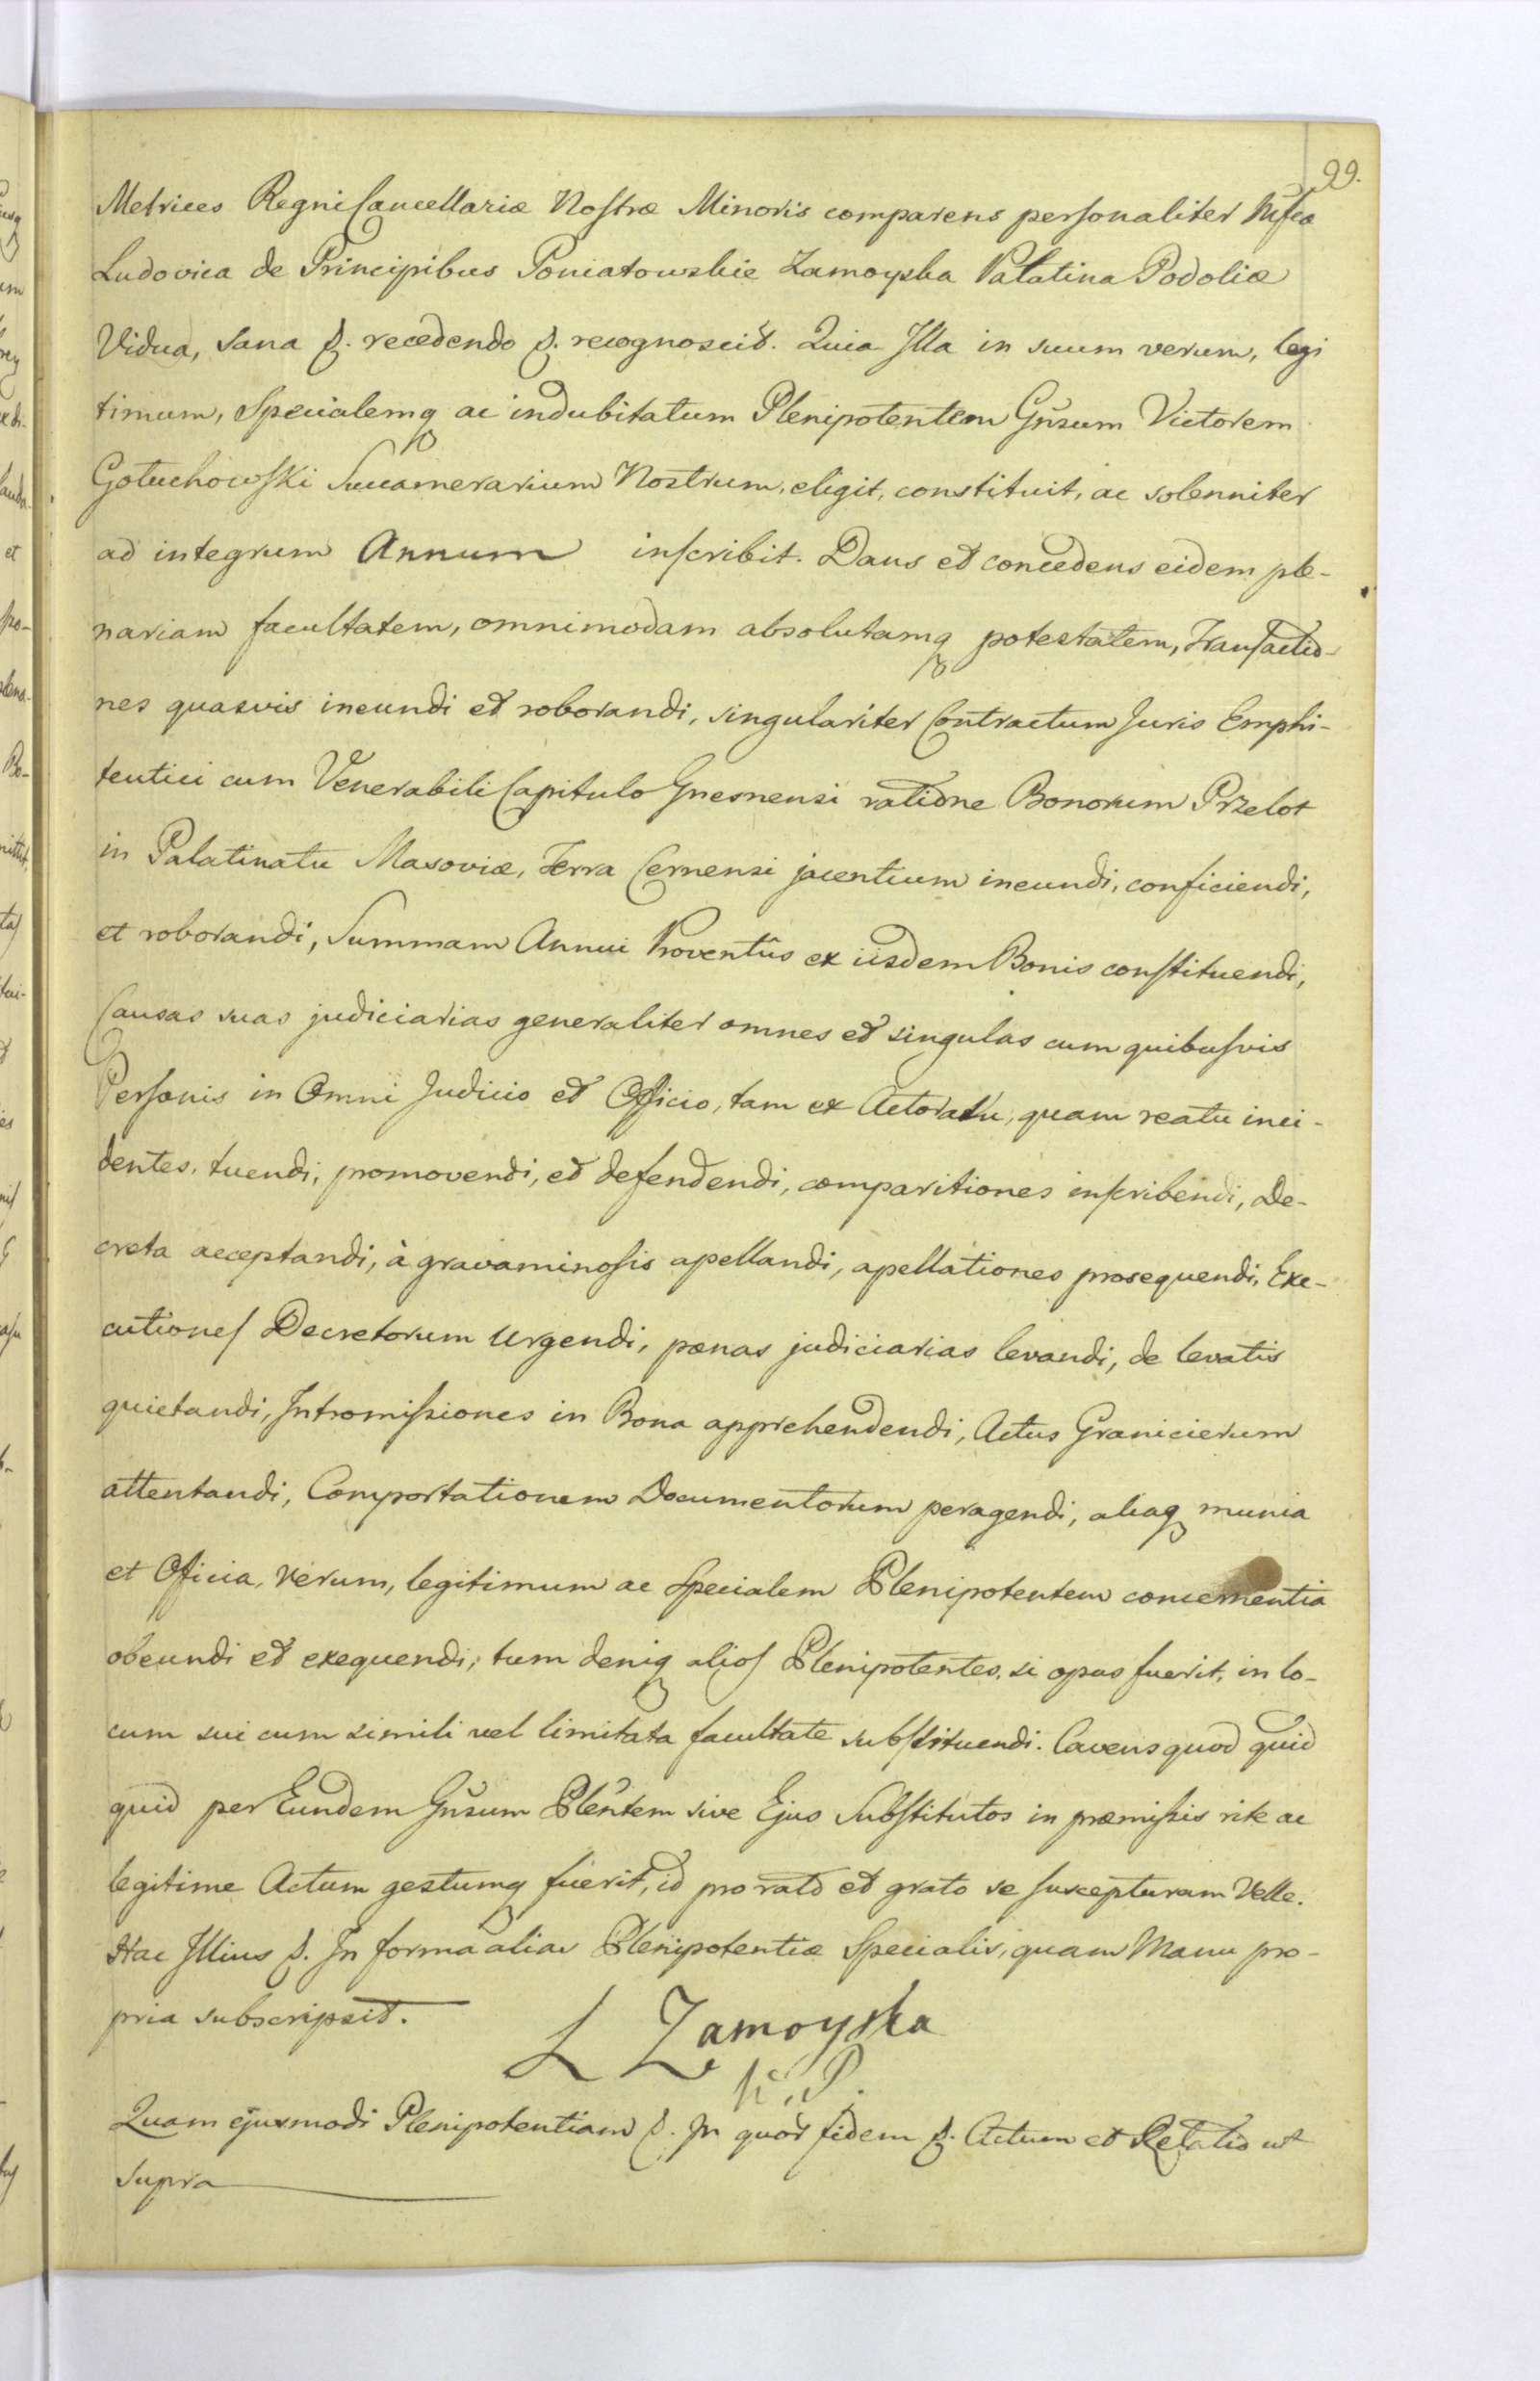 99.
Metrices Regni Cancellariæ Nostræ Minoris comparens personaliter
Ludovica de Principibus Poniatowskie Zamoyska Palatina Podoliæ
Vidua, sana p. recedendo p. recognoscit. Quia Illa in suum verum, legi
timum, Specialemq ac indubitatum Plenipotentem Gñsum Victorem
Gołuchowski Succamerarium Nostrum, eligit, constituit, ac solenniter
ad integrum Annum inscribit. Dans et concedens eidem ple-
nariam facultatem, omnimodam absolutamq potestatem, Transactio-
nes quasvis ineundi et roborandi, singulariter Contractum Juris Emphi-
teutici cum Venerabili Capitulo Gnesnensi ratione Bonorum Przelot
in Palatinatu Masoviæ, Terra Cernensi jacentium ineundi, conficiendi,
et roborandi, Summam Annui Proventûs ex iisdem Bonis constituendi,
Causas suas judiciarias generaliter omnes et singulas cum quibusvis
Personis in Omni Judicio et Officio, tam ex Actoratu, quam reatu inci-
dentes, tuendi, promovendi, et defendendi, comparitiones inscribendi, De-
creta acceptandi, à gravaminosis apellandi, apellationes prosequendi, Exe-
cutiones Decretorum urgendi, pœnas judiciarias levandi, de levatis
quietandi, Intromissiones in Bona apprehendendi, Actus Granicierum
attentandi, Comportationem Documentorum peragendi, aliaq munia
et Officia, verum, legitimum ac Specialem Plenipotentem concernentia
obeundi et exequendi; tum deniq alios Plenipotentes, si opus fuerit, in lo-
cum sui cum simili vel limitata facultate substituendi. Cavens quod quid
quid per Eundem Gñsum Pleñtem sive Ejus Substitutos in præmissis rite ac
legitime Actum gestumq fuerit, id pro rato et grato se suscepturam Velle.
Hac Illius p. In forma aliav Plenipotentiæ Specialis, quam Manu pro-
pria subscripsit.
L Zamoyska
W. P.
Quam ejusmodi Plenipotentiam p. In quor fidem p. Actum et Relatio ut
supra